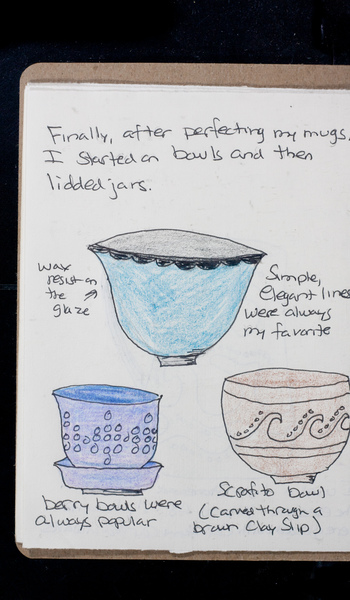 Finally, after perfecting my mugs,
I started on bowls and then
lidded jars.
wax
resist on
the
glaze
Simple,
elegant lines
were always
my favorite
berry bowls were
always popular
Scrafito bowl
(carves through a
brown clay slip)